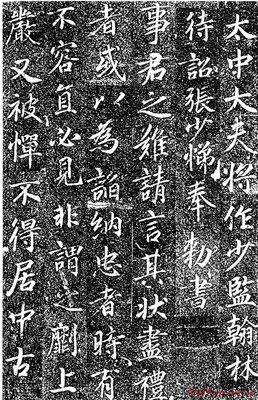 太中大夫將作少監翰林
待詔張少悌奉 勑書
事君之難請言其狀盡禮
者或以為諂納忠者時有
不容直必見非謂之劘上
嚴又被憚不得居中古